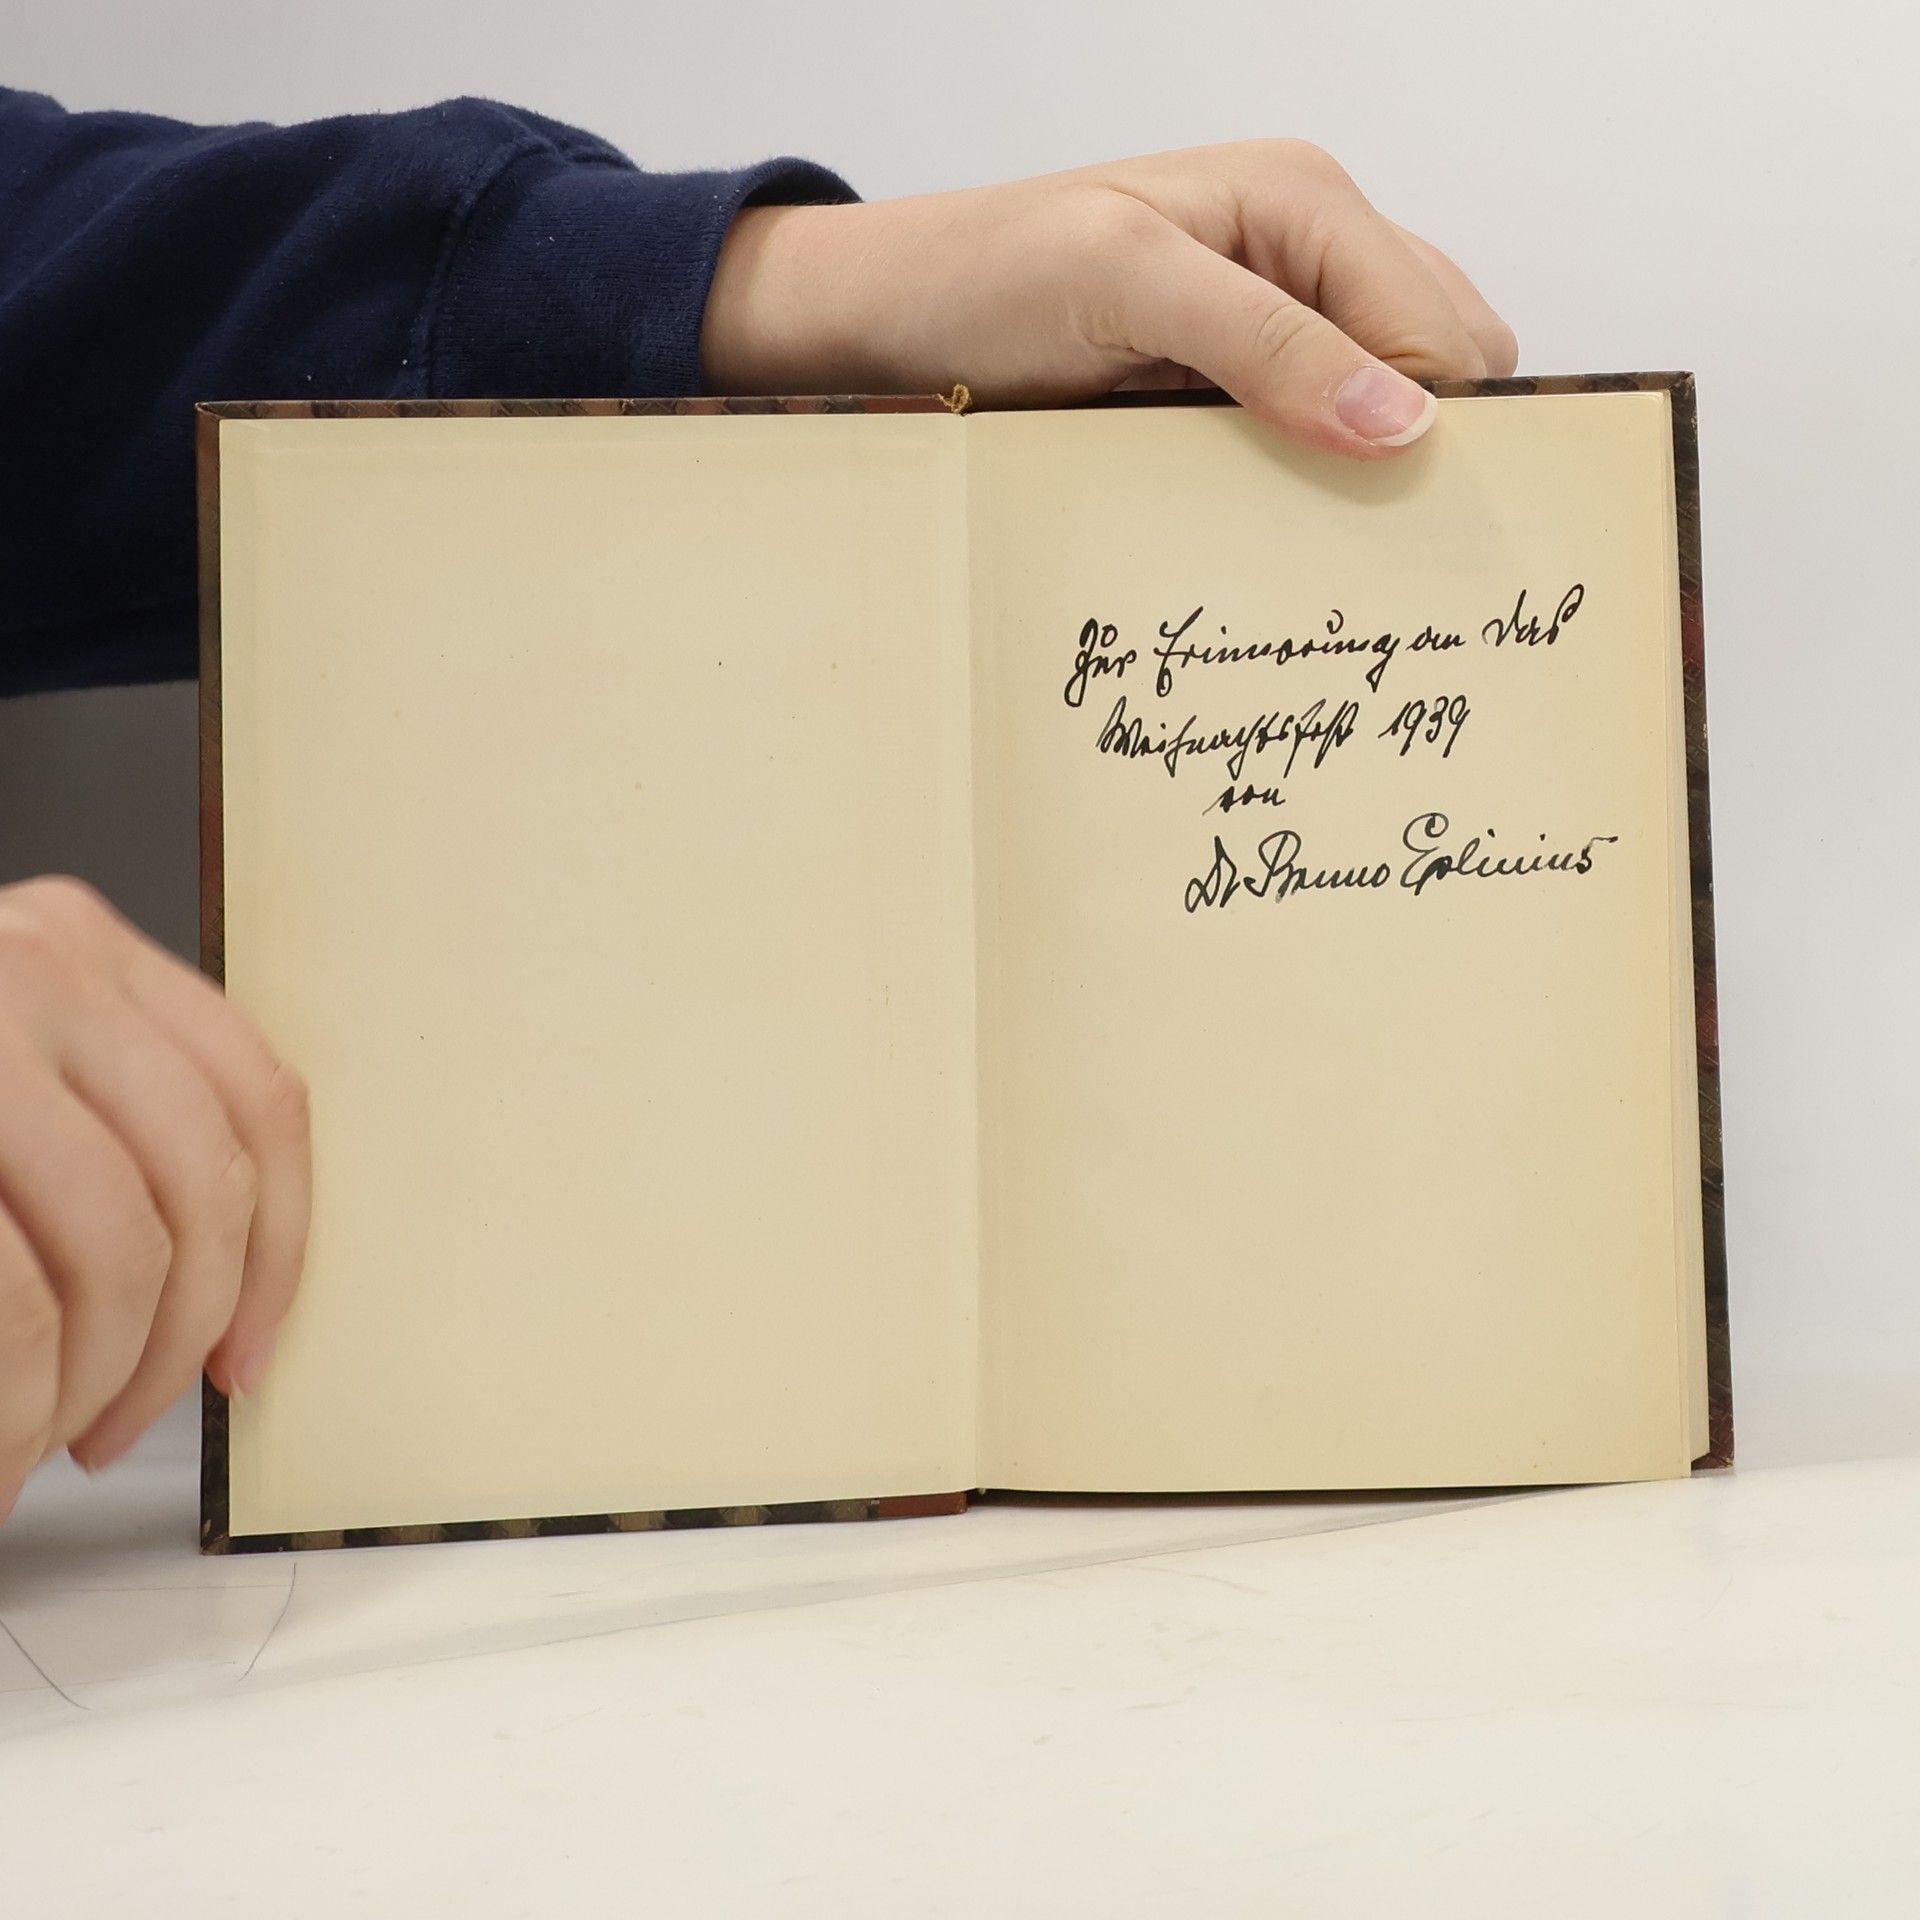 Zur Erinnerung an das
Weihnachtsfest 1939
von
Dr Bruno